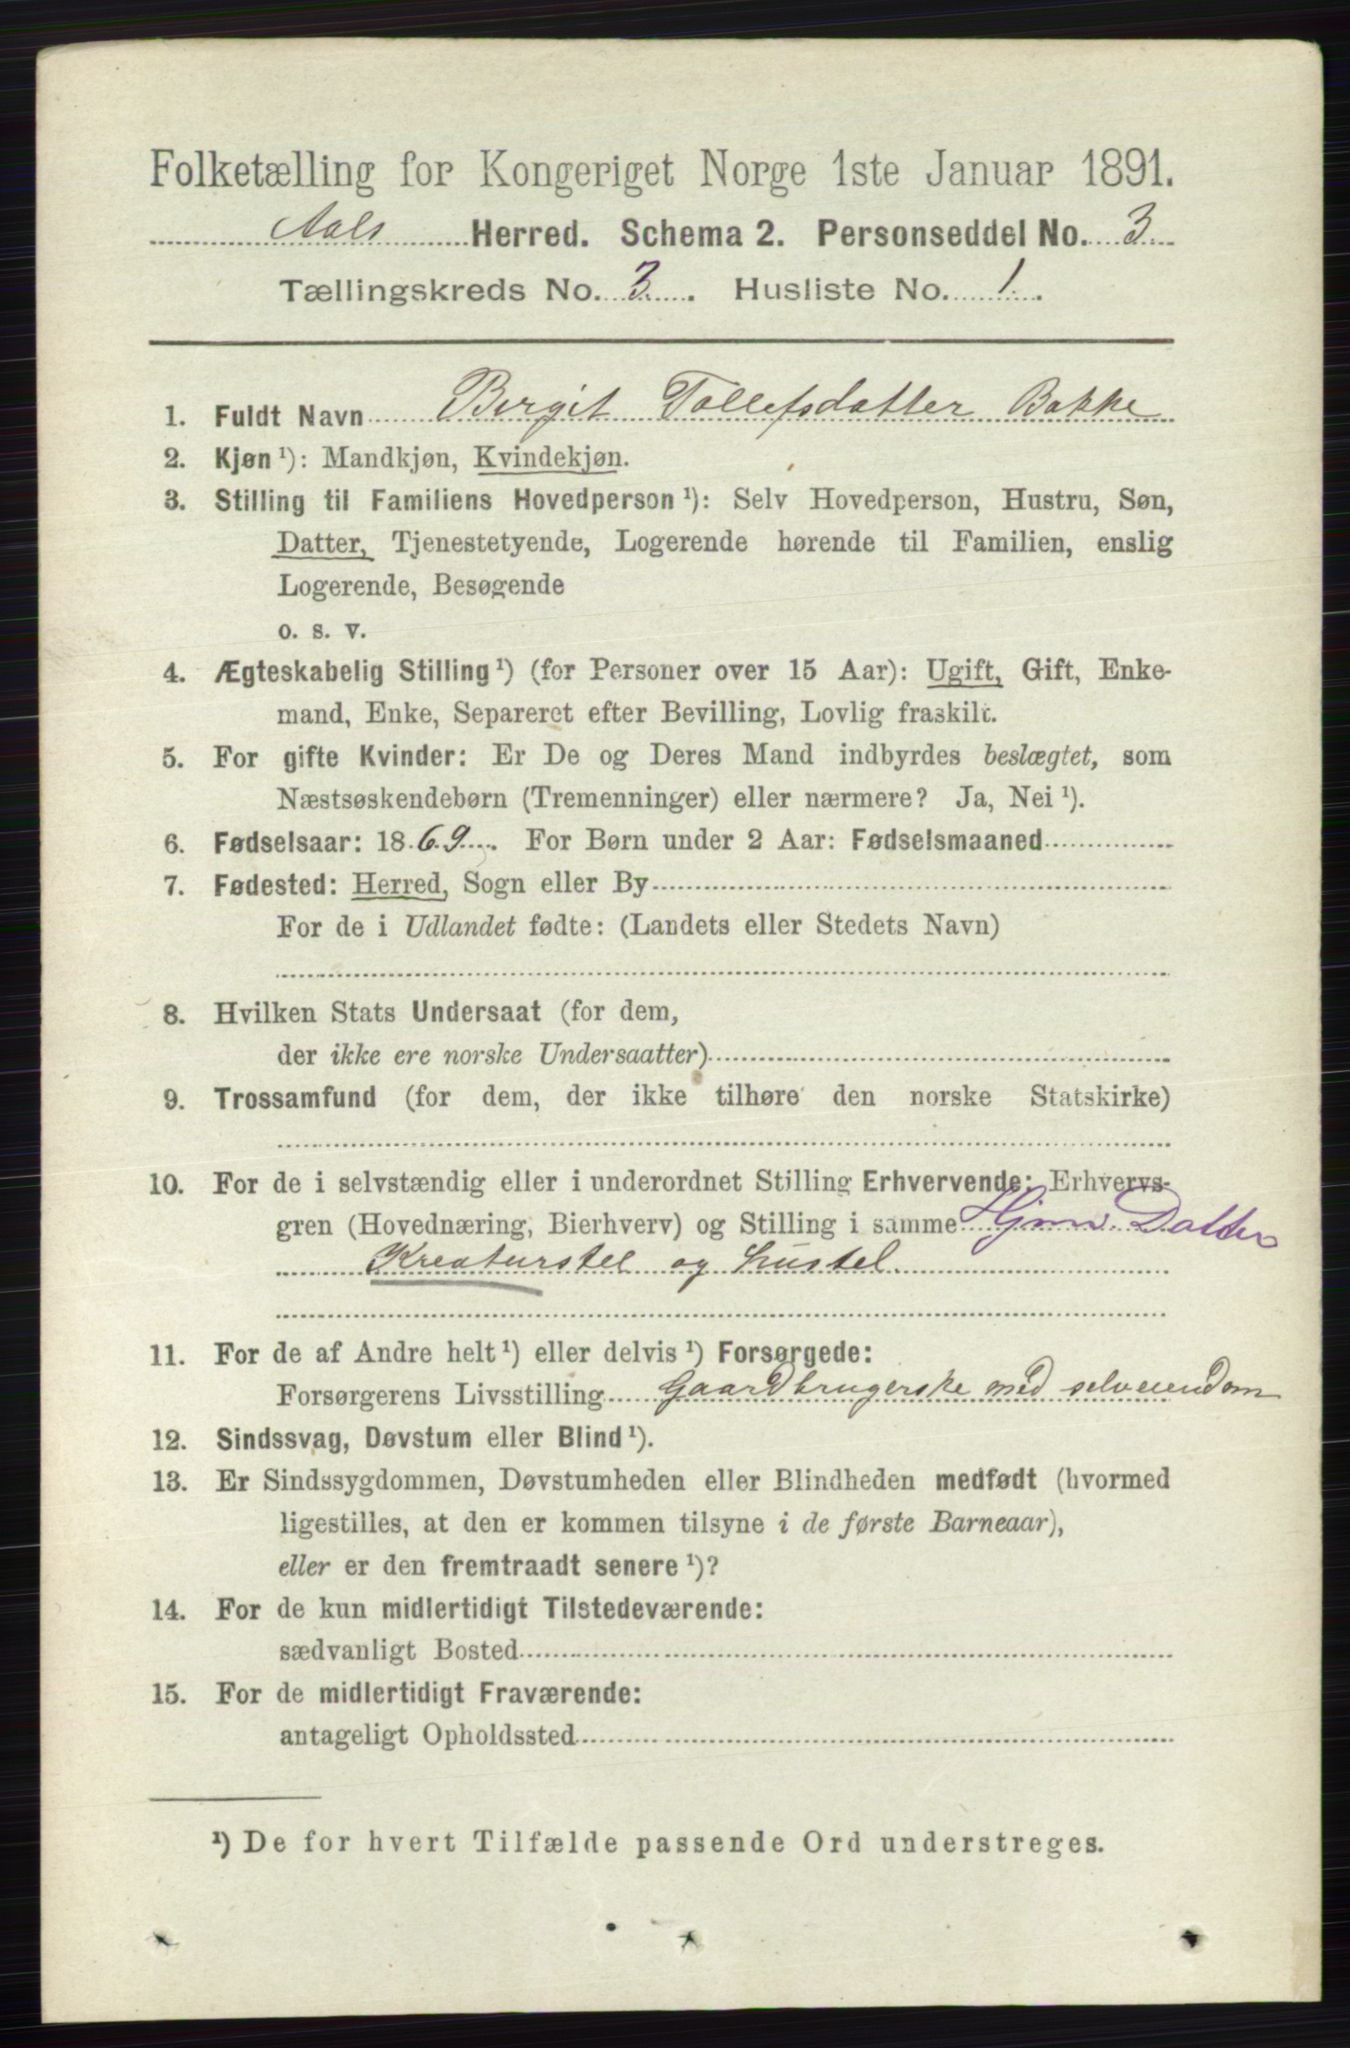 Folketælling for Kongeriget Norge 1ste Januar 1891.
Aals Herred. Schema 2. Personseddel No. 3
Tællingskreds No. 3. Husliste No. 1.
1. Fuldt Navn Birgit Tollefsdatter Bakke
2. Kjøn ¹): Mandkjøn, Kvindekjøn.
3. Stilling til Familiens Hovedperson ¹): Selv Hovedperson, Hustru, Søn,
Datter, Tjenestetyende, Logerende hørende til Familien, enslig
Logerende, Besøgende
o. s. v.
4. Ægteskabelig Stilling ¹) (for Personer over 15 Aar): Ugift, Gift, Enke-
mand, Enke, Separeret efter Bevilling, Lovlig fraskilt.
5. For gifte Kvinder: Er De og Deres Mand indbyrdes beslægtet, som
Næstsøskendebørn (Tremenninger) eller nærmere? Ja, Nei ¹).
6. Fødselsaar: 1869. For Børn under 2 Aar: Fødselsmaaned
7. Fødested: Herred, Sogn eller By
For de i Udlandet fødte: (Landets eller Stedets Navn)
8. Hvilken Stats Undersaat (for dem,
der ikke ere norske Undersaatter)
9. Trossamfund (for dem, der ikke tilhøre den norske Statskirke)
10. For de i selvstændig eller i underordnet Stilling Erhvervende: Erhvervs-
gren (Hovednæring, Bierhverv) og Stilling i samme Hjmv. Datter
Kreaturstel og Hustel.
11. For de af Andre helt ¹) eller delvis ¹) Forsørgede:
Forsørgerens Livsstilling Gaardbrugerske med selveiendom
12. Sindssvag, Døvstum eller Blind ¹).
13. Er Sindssygdommen, Døvstumheden eller Blindheden medfødt (hvormed
ligestilles, at den er kommen tilsyne i de første Barneaar),
eller er den fremtraadt senere ¹)?
14. For de kun midlertidigt Tilstedeværende:
sædvanligt Bosted
15. For de midlertidigt Fraværende:
antageligt Opholdssted
¹) De for hvert Tilfælde passende Ord understreges.